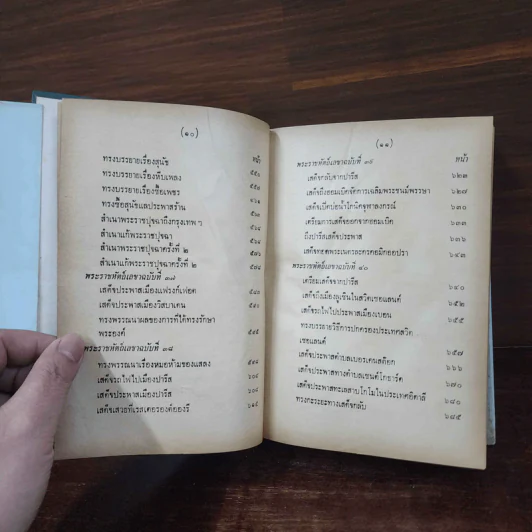 (๑๐)
หน้า
ทรงบรรยายเรื่องสุนัข
ทรงบรรยายเรื่องหีบเพลง
ทรงบรรยายเรื่องซื้อเพชร
ทรงซื้อสุนัขแลประพาสร้าน
สำเนาพระราชปุจฉาถึงกรุงเทพ ฯ
สำเนาแก้พระราชปุจฉา
สำเนาพระราชปุจฉาครั้งที่ ๒
สำเนาแก้พระราชปุจฉาครั้งที่ ๒
พระราชหัตถ์เลขาฉบับที่ ๓๗
เสด็จประพาสเมืองแฟรงก์เฟิต
เสด็จประพาสเมืองวิสบาเดน
ทรงพรรณนาผลของการที่ได้ทรงรักษา
พระองค์
พระราชหัตถ์เลขาฉบับที่ ๓๘
ทรงพรรณนาเรื่องหมอห้ามของแสลง
เสด็จรถไฟไปเมืองปารีส
เสด็จประพาสเมืองปารีส
เสด็จเสวยที่เรสเตอรองต์อองรี
(๑๑)
พระราชหัตถ์เลขาฉบับที่ ๓๙ หน้า
เสด็จกลับจากปารีส ๖๒๓
เสด็จถึงฮอมเบิคจัดการเฉลิมพระชนม์พรรษา ๖๒๗
เสด็จเปิดบ่อน้ำโกนิคจุฬาลงกรณ์ ๖๓๐
เตรียมการเสด็จออกจากฮอมเบิค ๖๓๓
ถึงปารีสเสด็จประพาส ๖๓๖
เสด็จทอดพระเนตรละครคอมิกออปรา ๖๔๓
พระราชหัตถ์เลขาฉบับที่ ๔๐
เตรียมเสด็จจากปารีส ๖๔๐
เสด็จถึงเมืองลูเซินในสวิตเซอแลนด์ ๖๕๒
เสด็จรถไฟไปประพาสเมืองเบอน ๖๕๕
ทรงบรรยายวิธีการปกครองประเทศสวิต
เซอแลนด์ ๖๕๗
เสด็จประพาสตำบลเบอรเคนสต๊อก ๖๖๖
เสด็จประพาสทางตำบลเซนต์โกธาร์ด ๖๗๐
เสด็จประพาสทะเลสาบโกโมในประเทศอิตาลี ๖๘๐
ทรงกะระยะทางเสด็จกลับ ๖๘๕